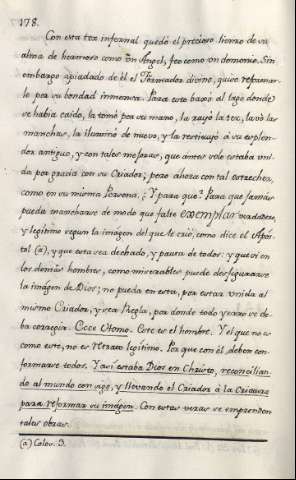 178.
Con esta tez infernal quedó el precioso lienzo de su
alma de hermoso como un Angel, feo como un demonio. Sin
embargo apiadado de él el Formador divino, quiso reformar-
le por su bondad inmensa. Para esto baxó al lugar donde
se habia caido, la tomó por su mano, la rayó la tez, lavó las
manchas, la iluminó de nuevo, y la restituyó à su esplen-
dor antiguo, y con tales mejoras, que antes solo estaba uni-
da por gracia con su Criador; pero ahora con tal estrechez,
como en su misma Persona. ¿Y para que? Para que jamás
pueda mancharse de modo que falte exemplar verdadero,
y legitimo segun la imágen del que le crió, como dice el Após-
tol (a), y que esta sea dechado, y pauta de todos: y que si en
los demás hombres, como miserables puede desfigurarse
la imágen de Dios; no pueda en esta, por estar unida al
mismo Criador, y sea Regla, por donde todo yerro se de-
ba corregir. Ecce Homo. Este es el hombre. Y el que no es
como este, no es retrato legítimo. Por que con él deben con-
formarse todos. Y asi estaba Dios en Christo, reconcilian-
do al mundo con sigo, y llevando el Criador à la Criatura
para reformar su imágen. Con estas veras se emprenden
tales obras.
(a) Colos. 3.